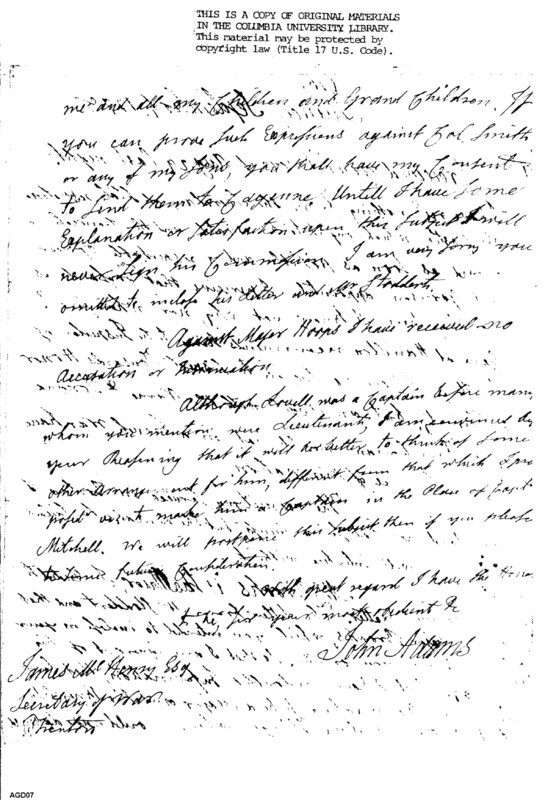 THIS IS A COPY OF ORIGINAL MATERIALS
IN THE COLUMBIA UNIVERSITY LIBRARY.
This material may be protected by
copyright law (Title 17 U.S. Code).
me and all my Children and Grand Children. If
you can prove Such Expressions against Col Smith
or any of my Sons, you shall have my Consent
to Send them to Cayenne. Untill I have some
Explanation or Satisfaction upon this Subject I will
never Sign his Commission. I am very Sorry you
omitted to inclose his Letter and Mr Stodderts
Against Major Hoops I have received no
Accusation or Insinuation
Although Lovell was a Captain before many
whom you mention were Lieutenants, I am convinced by
your Reasoning that it will be better to think of Some
other Arrangement for him, different from that which I pro
posed or not make him a Captain in the Place of Capt
Mitchell. We will postpone this Subject then if you please
future Consideration
With great regard I have the Honor
to be Sir your most obedient &c
John Adams
James McHenry Esq
Secretary of War
Trenton
AGD07